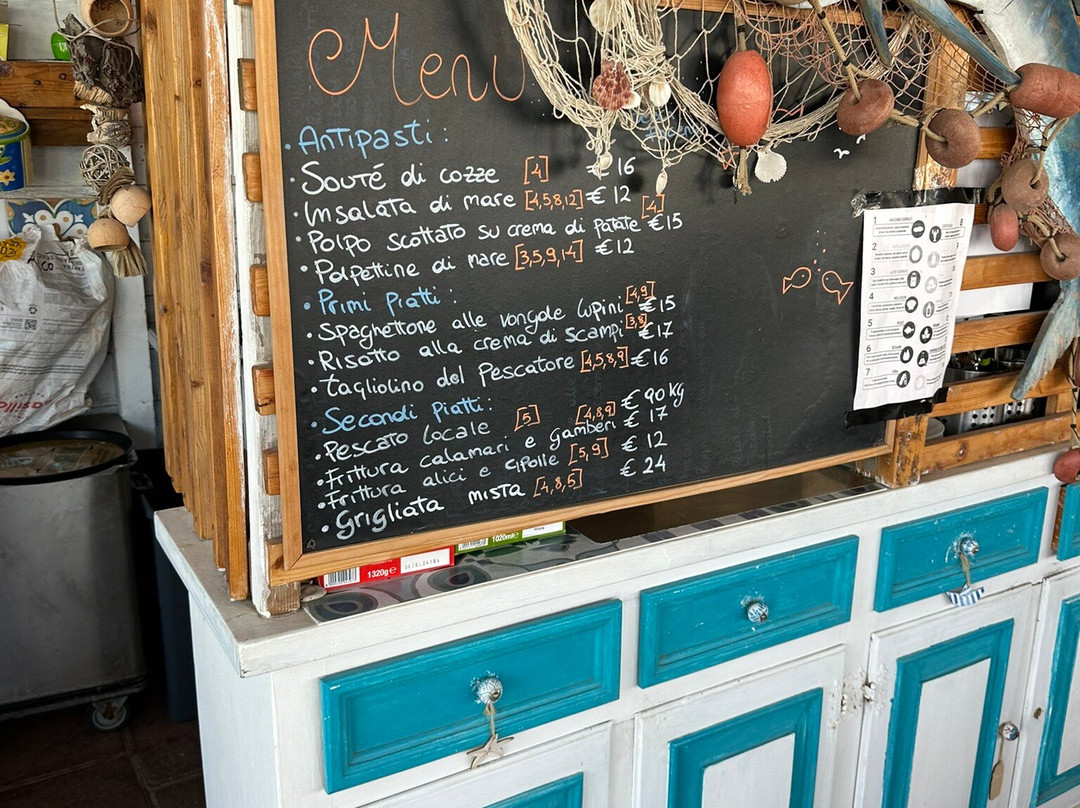 Menu
• Antipasti :
• Souté di cozze [4] € 16
• Insalata di mare [4,5,8,12] € 12
• Polpo scottato su crema di patate [4] € 15
• Polpettine di mare [3,5,9,14] € 12
• Primi Piatti :
• Spaghettone alle vongole lupini [4,9] € 15
• Risotto alla crema di scampi [3,8] € 17
• tagliolino del Pescatore [4,5,8,9] € 16
• Secondi Piatti:
• Pescato locale [5] € 90 kg
• Frittura calamari e gamberi [4,8,9] € 17
• Frittura alici e cipolle [5,9] € 12
• Grigliata mista [4,8,5] € 24
1
2
3
4
5
6
7
1320g e
1020ml e